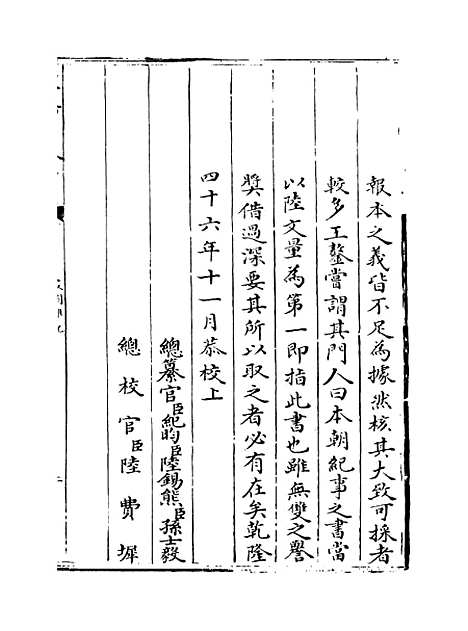 報本之義皆不足為據然核其大致可採者
較多王鏊嘗謂其門人曰本朝紀事之書當
以陸文量為第一即指此書也雖無雙之譽
獎借過深要其所以取之者必有在矣乾隆
四十六年十一月恭校上
總纂官臣紀昀臣陸錫熊臣孫士毅
總校官臣陸費墀